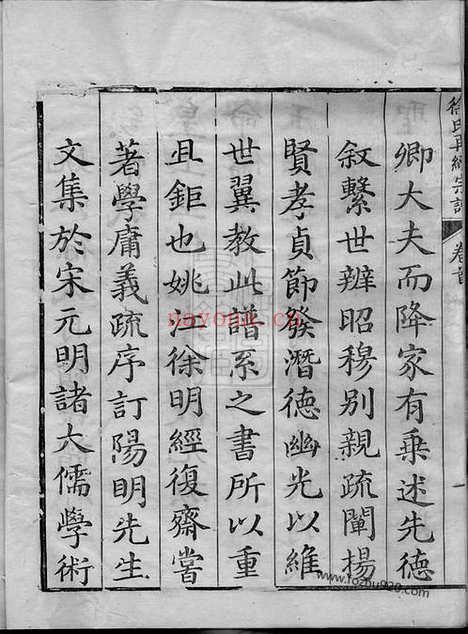 徐氏再續宗譜
卷首
卿大夫而降家有乘述先德
敘繫世辨昭穆別親疏闡揚
賢孝貞節發潛德幽光以維
世翼教此譜系之書所以重
且鉅也姚江徐明經復齋嘗
著學庸義疏序訂陽明先生
文集於宋元明諸大儒學術
nayona.cn